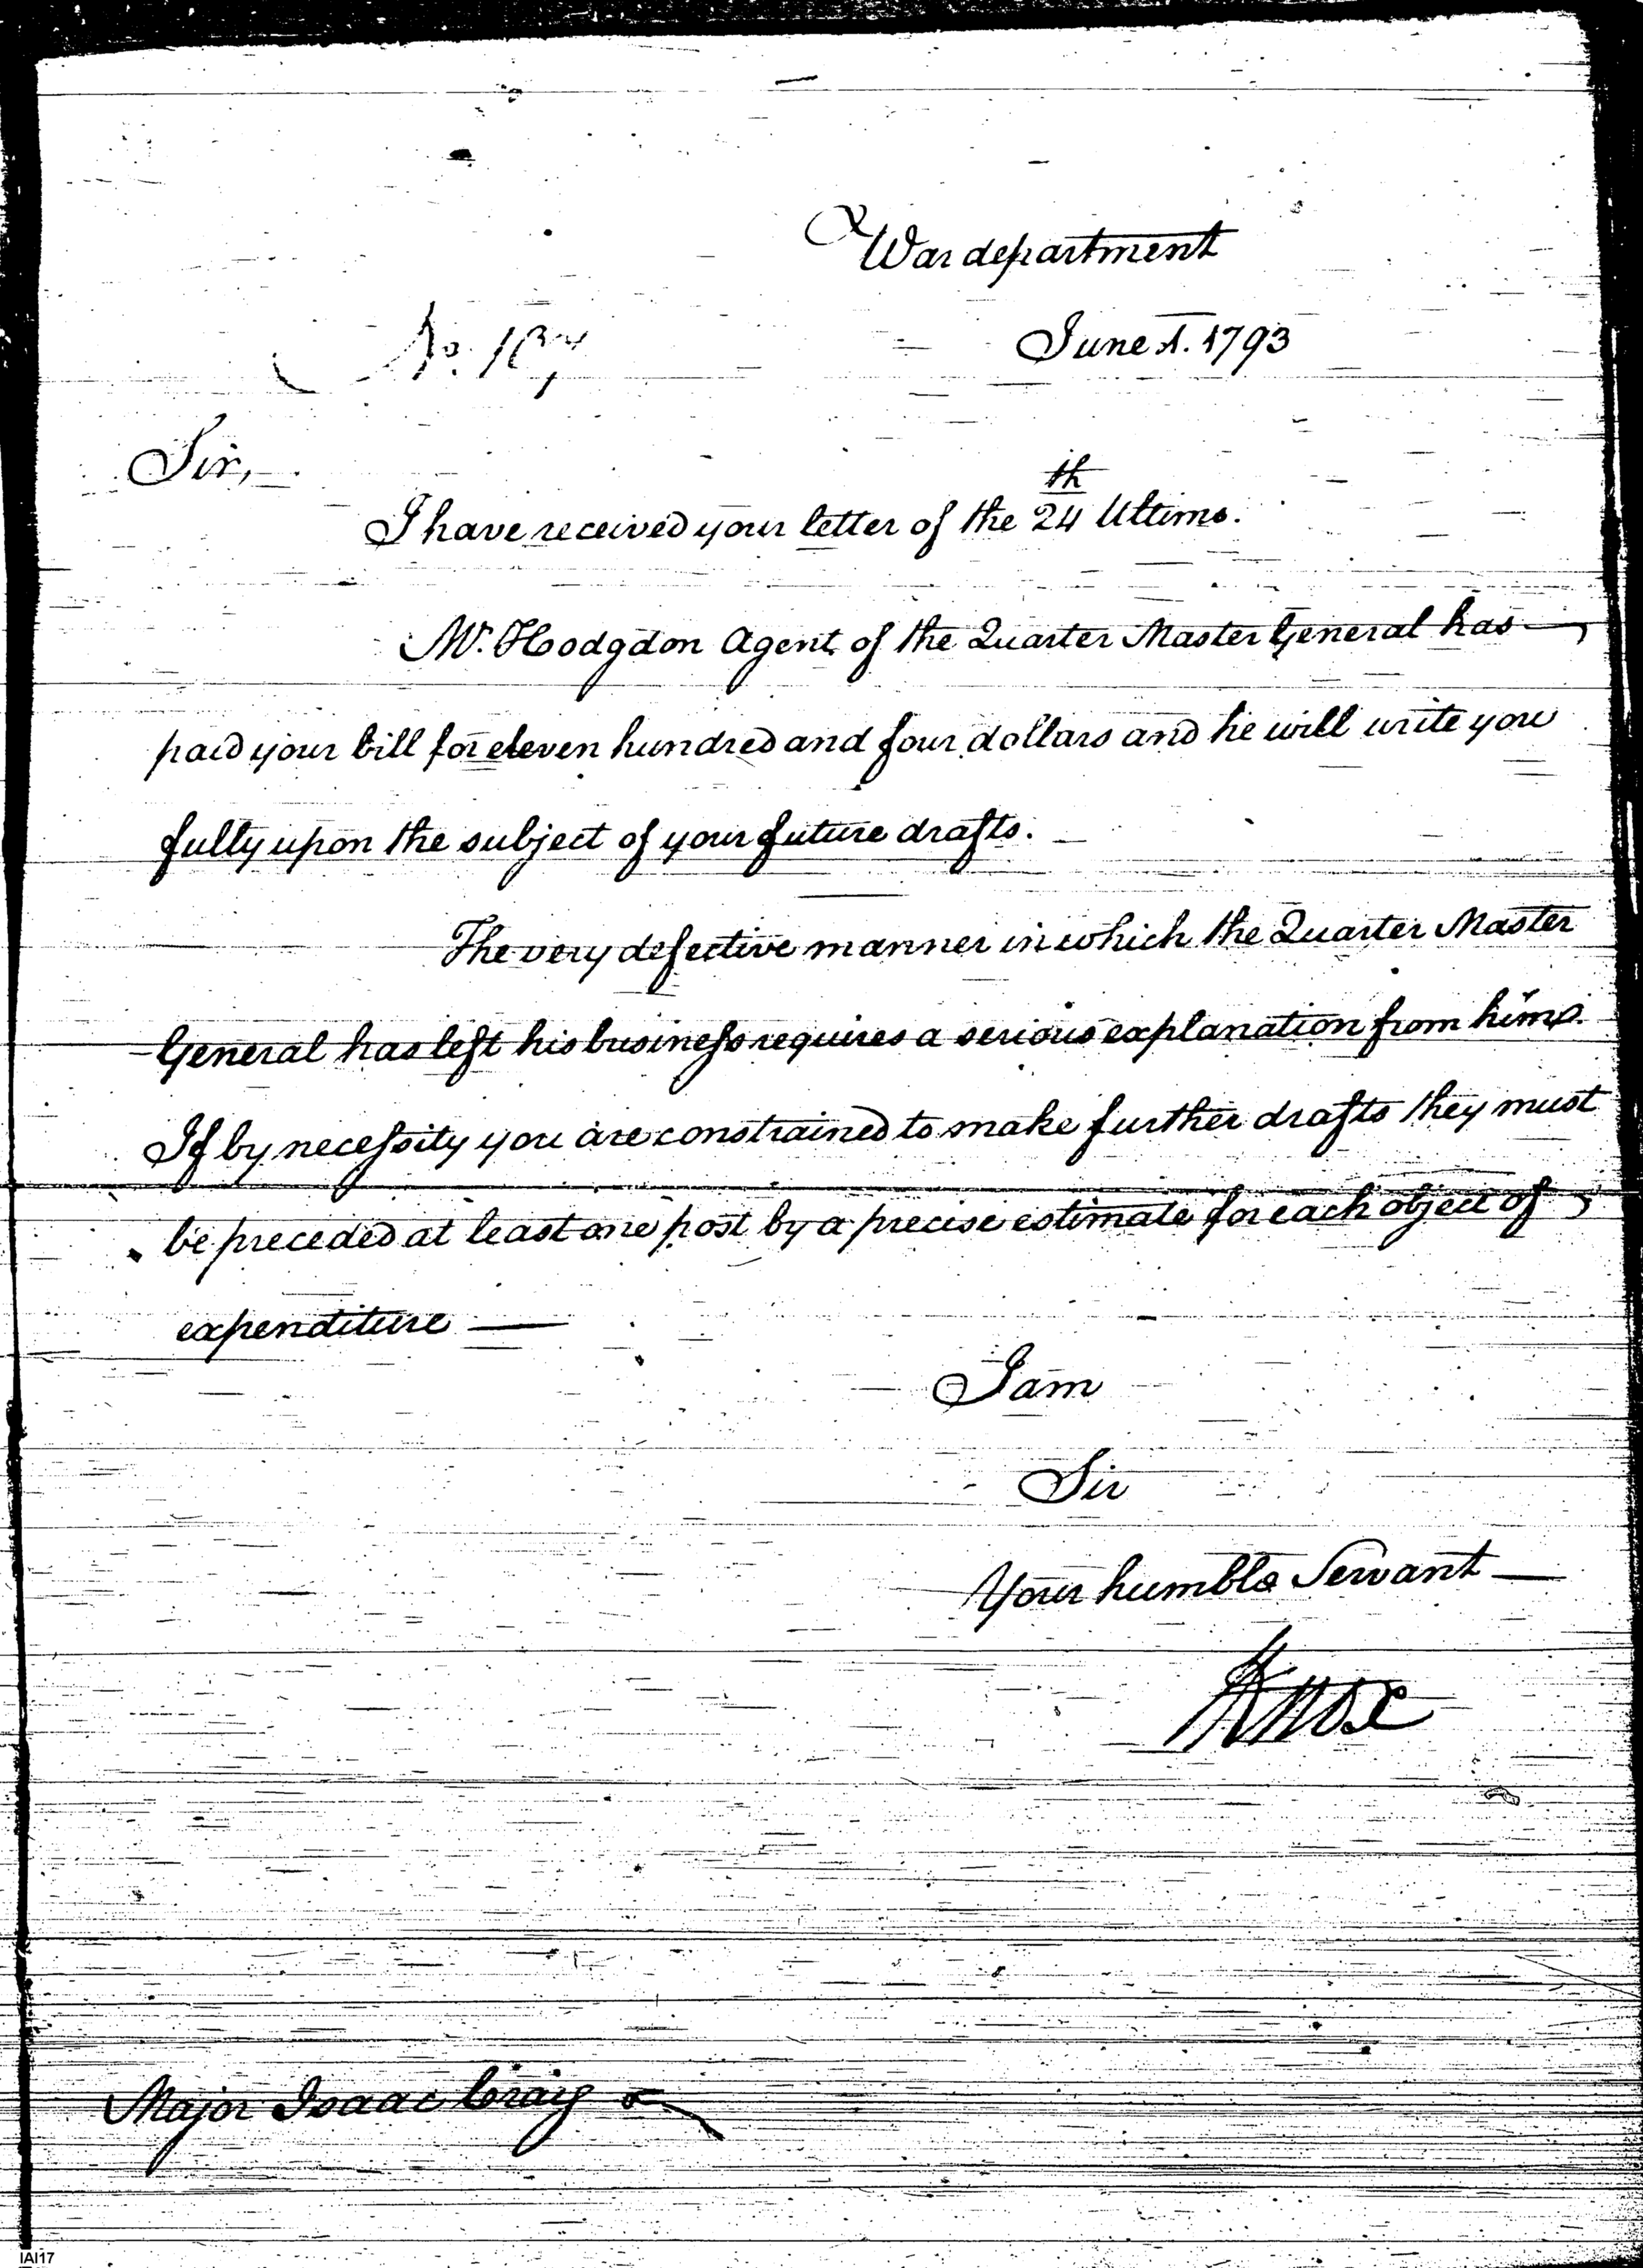 War department
June 1. 1793
No.
Sir,
I have received your letter of the 24th Ultimo.
Mr. Hodgdon Agent of the Quarter Master General has
paid your bill for eleven hundred and four dollars and he will write you
fully upon the subject of your future drafts.
The very defective manner in which the Quarter Master
General has left his business requires a serious explanation from him.
If by necessity you are constrained to make further drafts they must
be preceded at least one post by a precise estimate for each object of
expenditure —
I am
Sir
Your humble Servant —
HKnox
Major Isaac Craig
IAI17